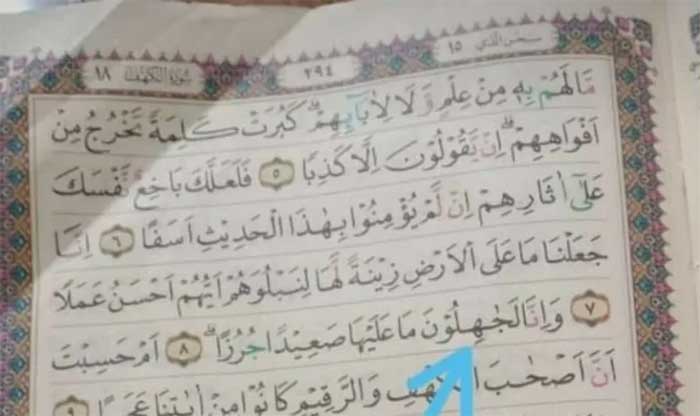 سبحن الذي ١٥ ٢٩٤ سورة الكهف ١٨
مَا لَهُمْ بِهٖ مِنْ عِلْمٍ وَّلَا لِاٰبَاۤىِٕهِمْۗ كَبُرَتْ كَلِمَةً تَخْرُجُ مِنْ
اَفْوَاهِهِمْۗ اِنْ يَّقُوْلُوْنَ اِلَّا كَذِبًا ٥ فَلَعَلَّكَ بَاخِعٌ نَّفْسَكَ
عَلٰٓى اٰثَارِهِمْ اِنْ لَّمْ يُؤْمِنُوْا بِهٰذَا الْحَدِيْثِ اَسَفًا ٦ اِنَّا
جَعَلْنَا مَا عَلَى الْاَرْضِ زِيْنَةً لَّهَا لِنَبْلُوَهُمْ اَيُّهُمْ اَحْسَنُ عَمَلًا
٧ وَاِنَّا لَجٰهِلُوْنَ مَا عَلَيْهَا صَعِيْدًا جُرُزًاۗ ٨ اَمْ حَسِبْتَ
اَنَّ اَصْحٰبَ وَالرَّقِيْمِ كَانُوْا مِنْ اٰيٰتِنَا عَجَبًا ٩